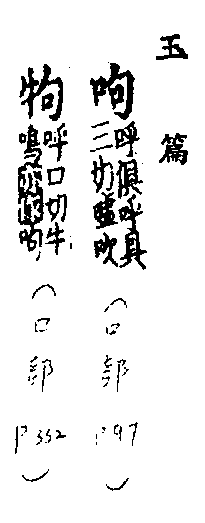 玉篇
呴 呼俱呼具
三切噓吹
(口部 P97)
㸸 呼口切牛
鳴呴
(口部 P352)